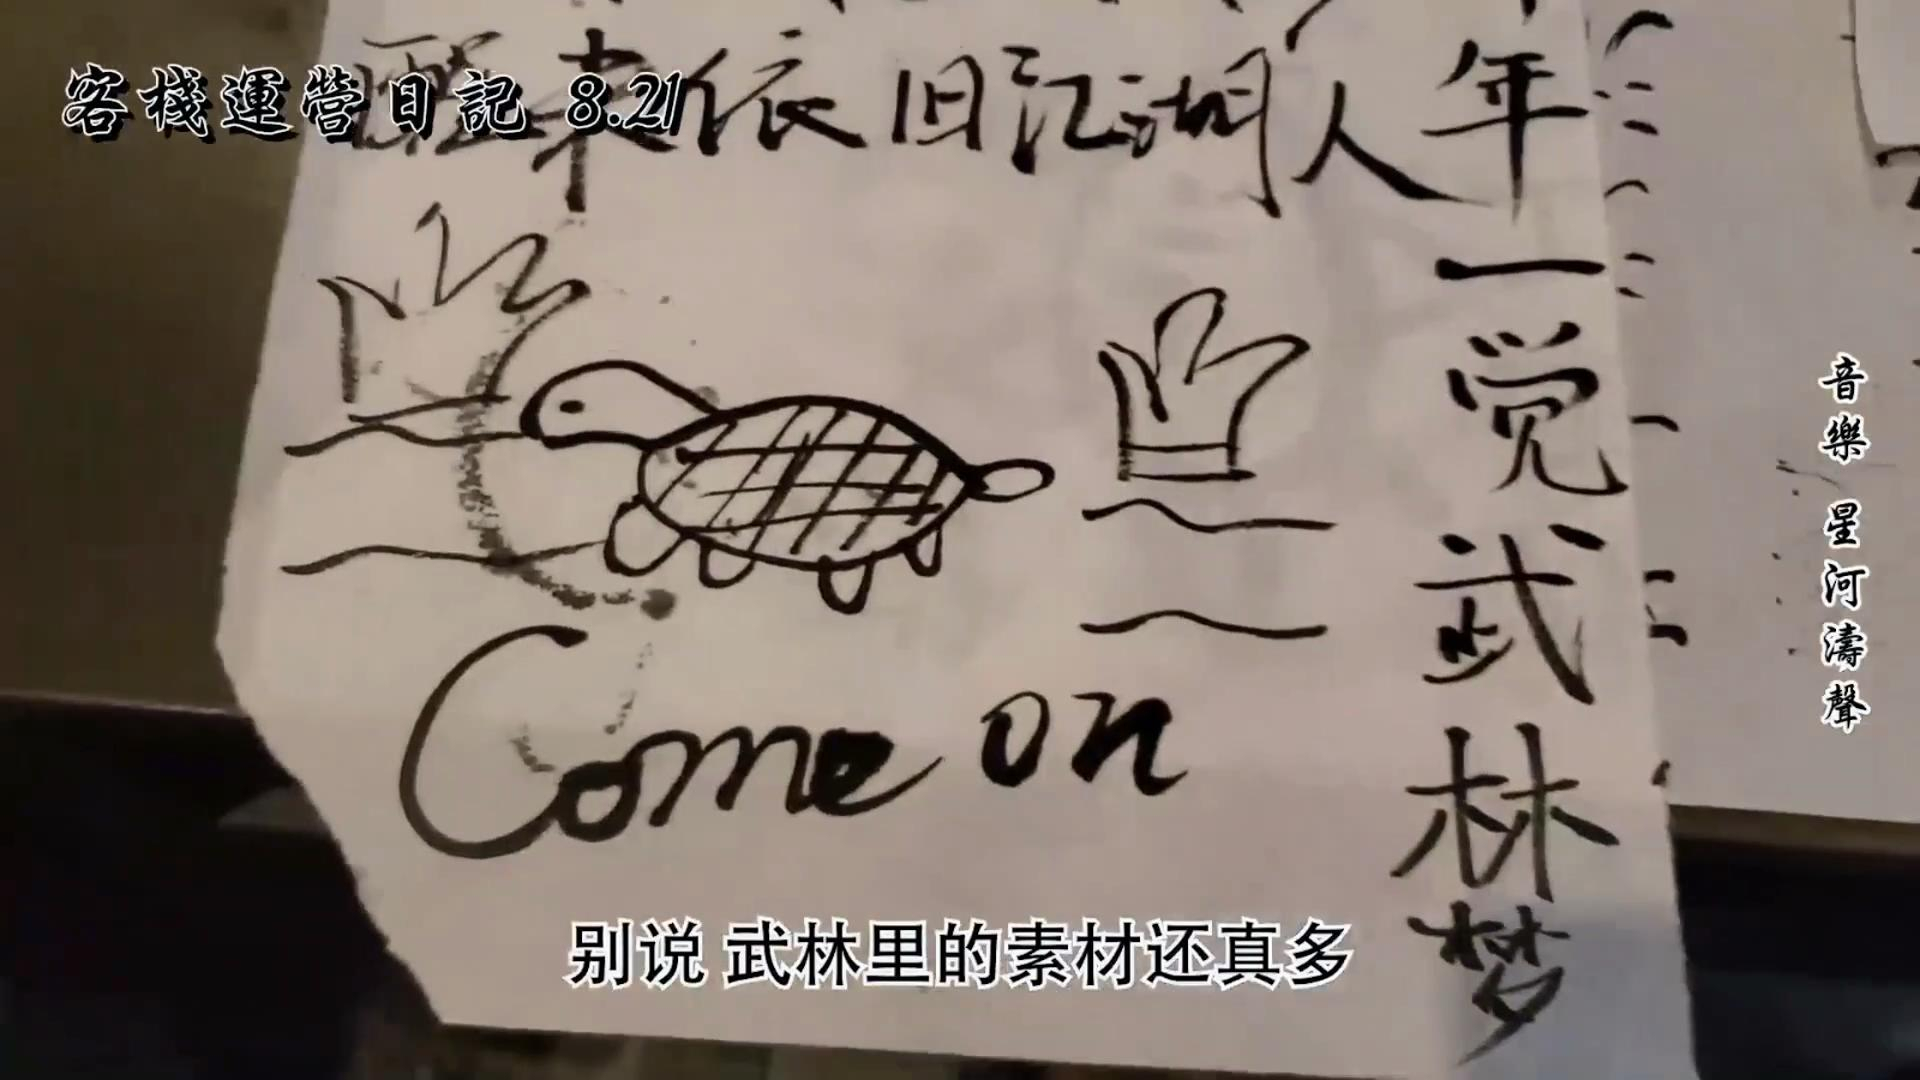 客棧運營日記 8.21
醒来依旧江湖人
年一觉武林梦
Come on
音樂 星河濤聲
别说 武林里的素材还真多